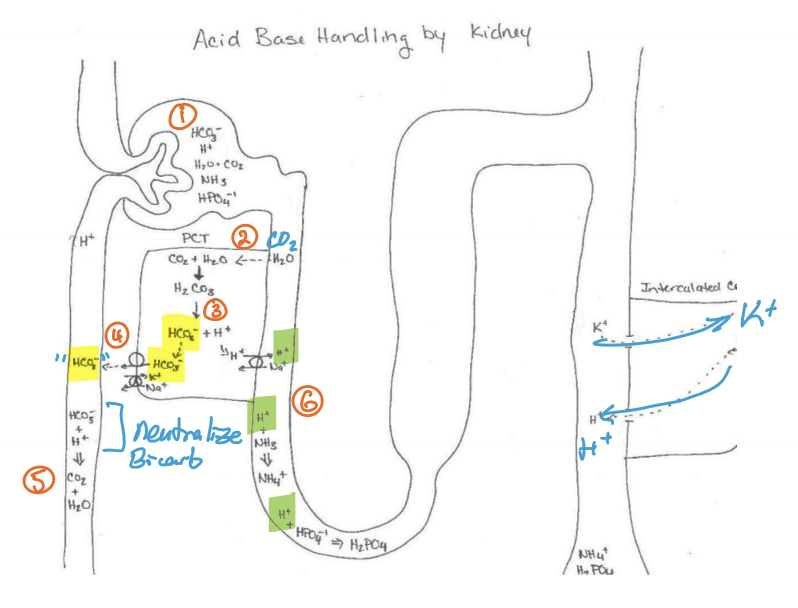 Acid Base Handling by Kidney
①
HCO₃⁻
H⁺
H₂O + CO₂
NH₃
HPO₄⁻¹
H⁺
PCT
②
CO₂
CO₂ + H₂O
H₂O
H₂CO₃
③
HCO₃⁻ + H⁺
④
"HCO₃⁻"
HCO₃⁻
K⁺
Na⁺
H⁺
H⁺
Na⁺
HCO₃⁻
+
H⁺
Neutralize
Bicarb
⑤
CO₂
+
H₂O
⑥
H⁺
+
NH₃
NH₄⁺
H⁺
+
HPO₄⁻¹ ⇒ H₂PO₄
Intercalated Ce
K⁺
K+
H⁺
H+
NH₄⁺
H₂PO₄